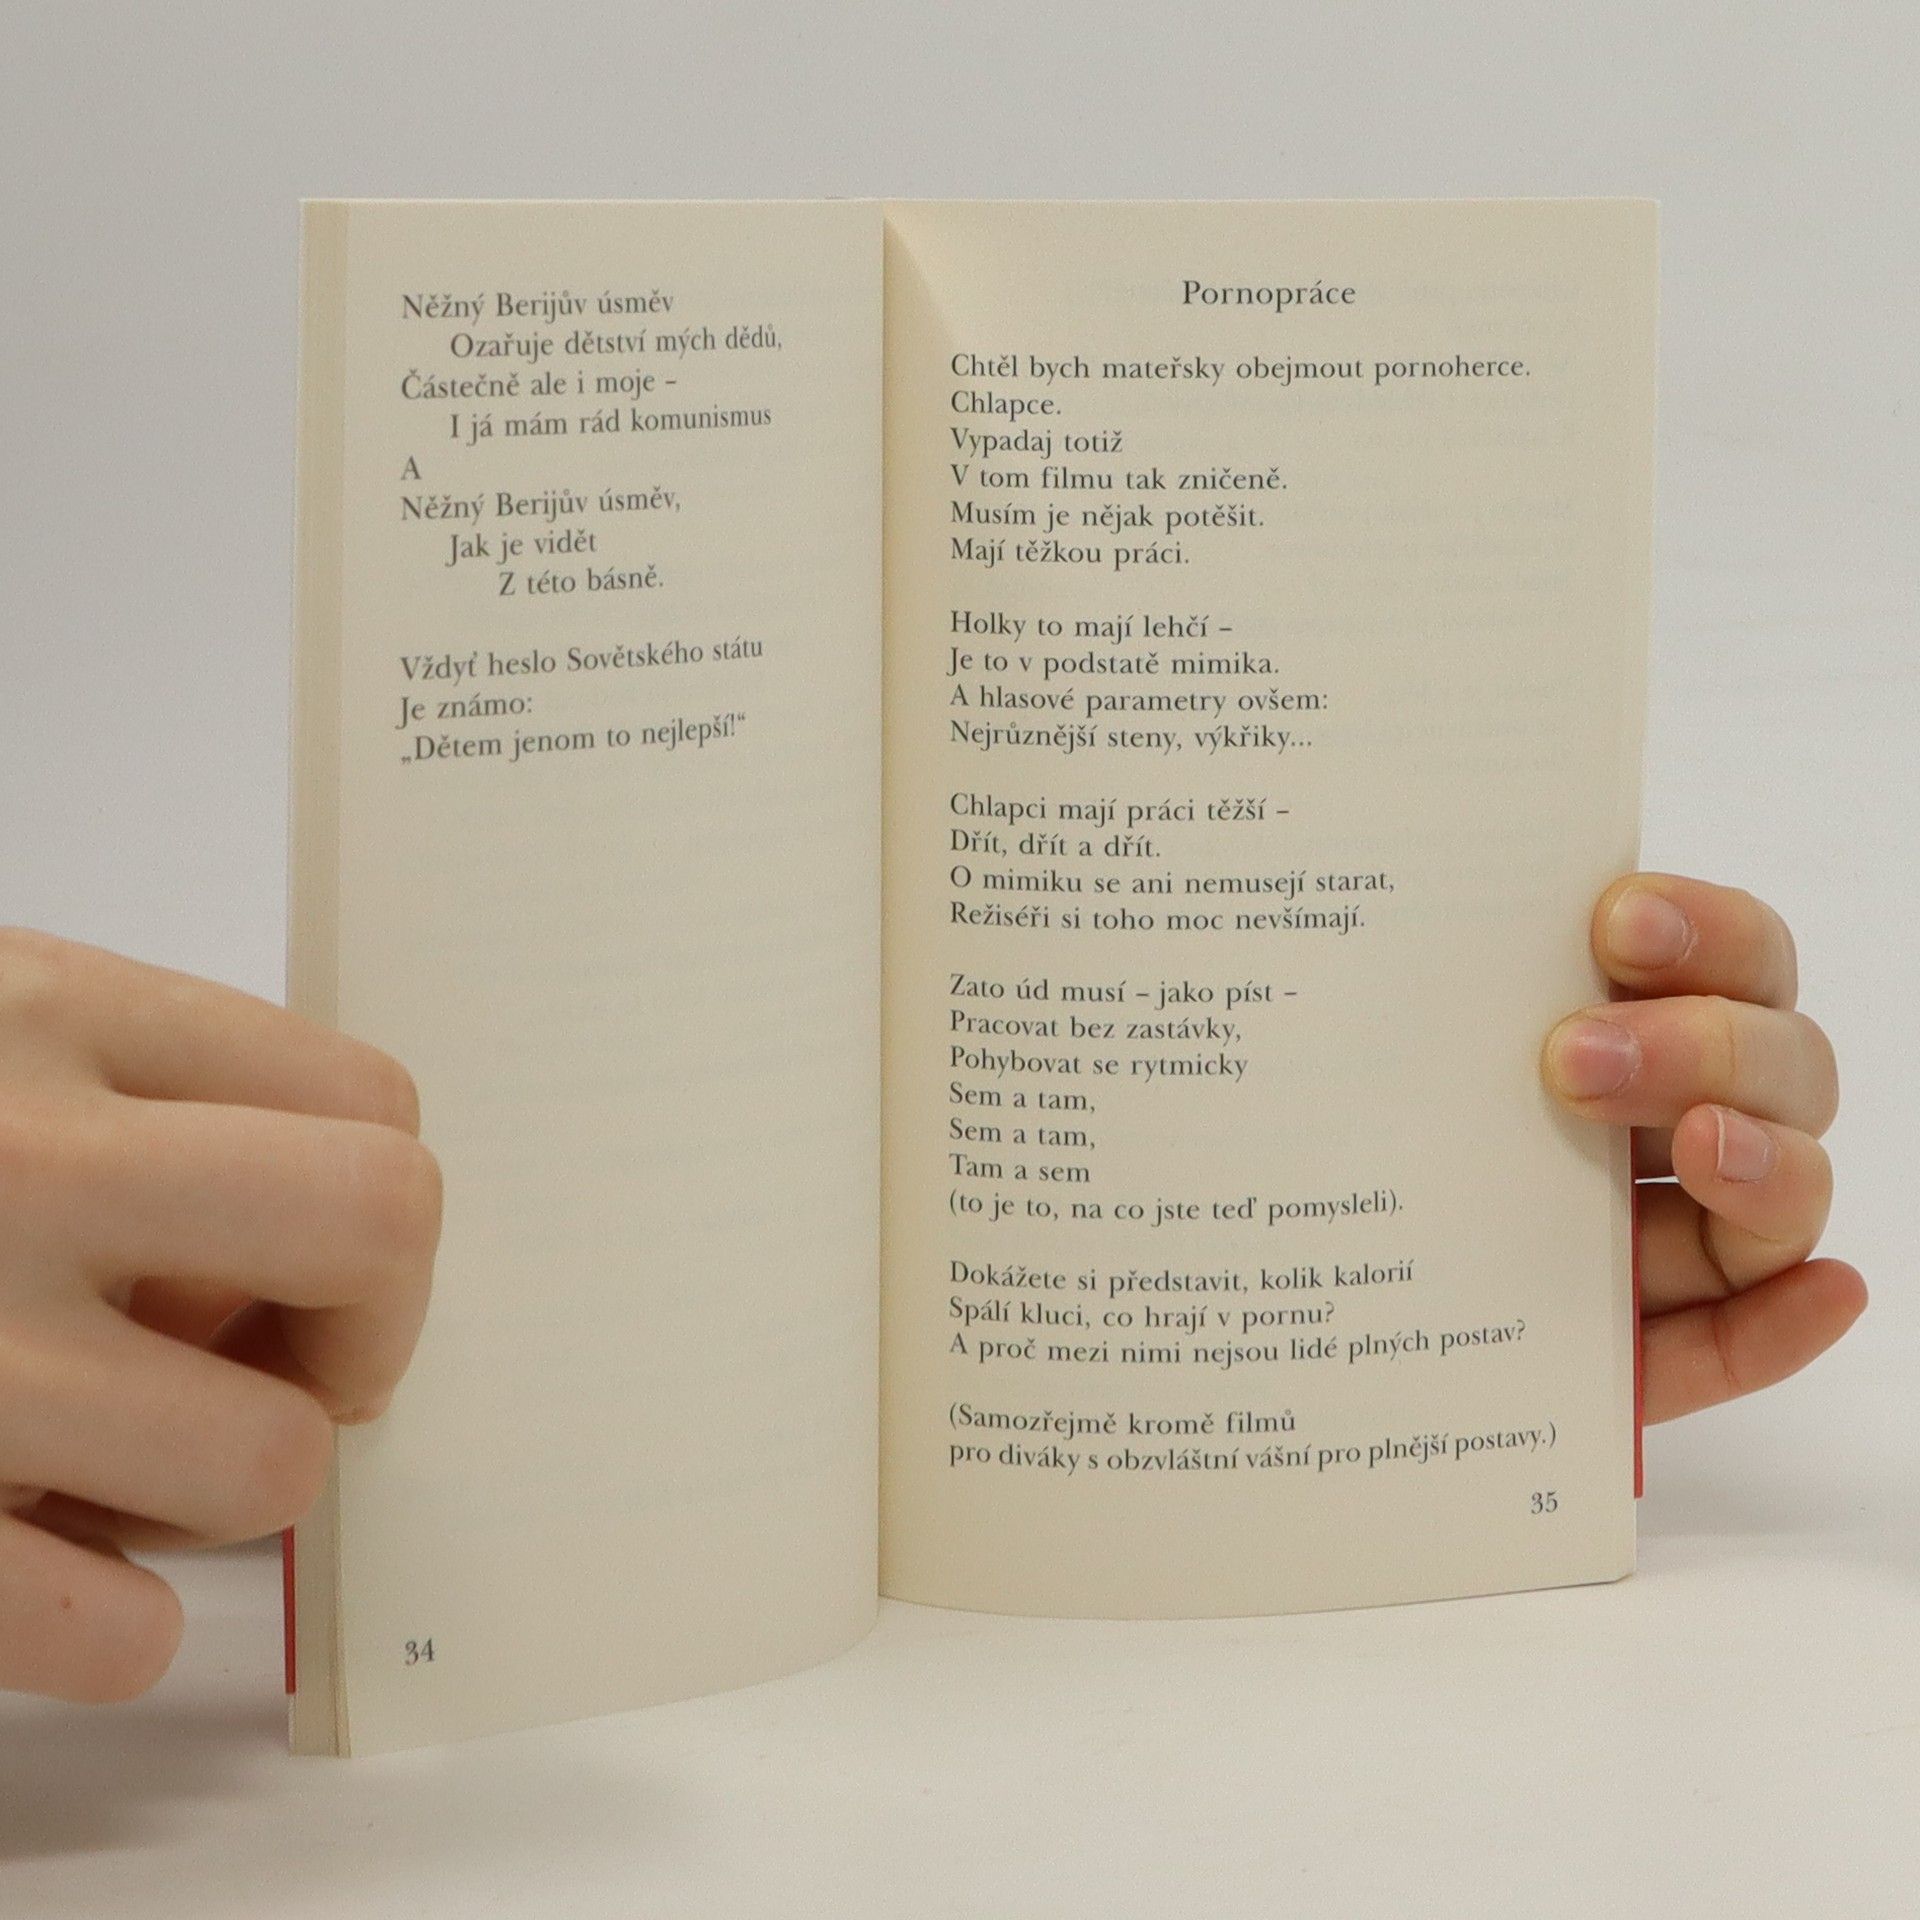 Něžný Berijův úsměv
Ozařuje dětství mých dědů,
Částečně ale i moje –
I já mám rád komunismus
A
Něžný Berijův úsměv,
Jak je vidět
Z této básně.
Vždyť heslo Sovětského státu
Je známo:
„Dětem jenom to nejlepší!“
34
Pornopráce
Chtěl bych mateřsky obejmout pornoherce.
Chlapce.
Vypadaj totiž
V tom filmu tak zničeně.
Musím je nějak potěšit.
Mají těžkou práci.
Holky to mají lehčí –
Je to v podstatě mimika.
A hlasové parametry ovšem:
Nejrůznější steny, výkřiky...
Chlapci mají práci těžší –
Dřít, dřít a dřít.
O mimiku se ani nemusejí starat,
Režiséři si toho moc nevšímají.
Zato úd musí – jako píst –
Pracovat bez zastávky,
Pohybovat se rytmicky
Sem a tam,
Sem a tam,
Tam a sem
(to je to, na co jste teď pomysleli).
Dokážete si představit, kolik kalorií
Spálí kluci, co hrají v pornu?
A proč mezi nimi nejsou lidé plných postav?
(Samozřejmě kromě filmů
pro diváky s obzvláštní vášní pro plnější postavy.)
35